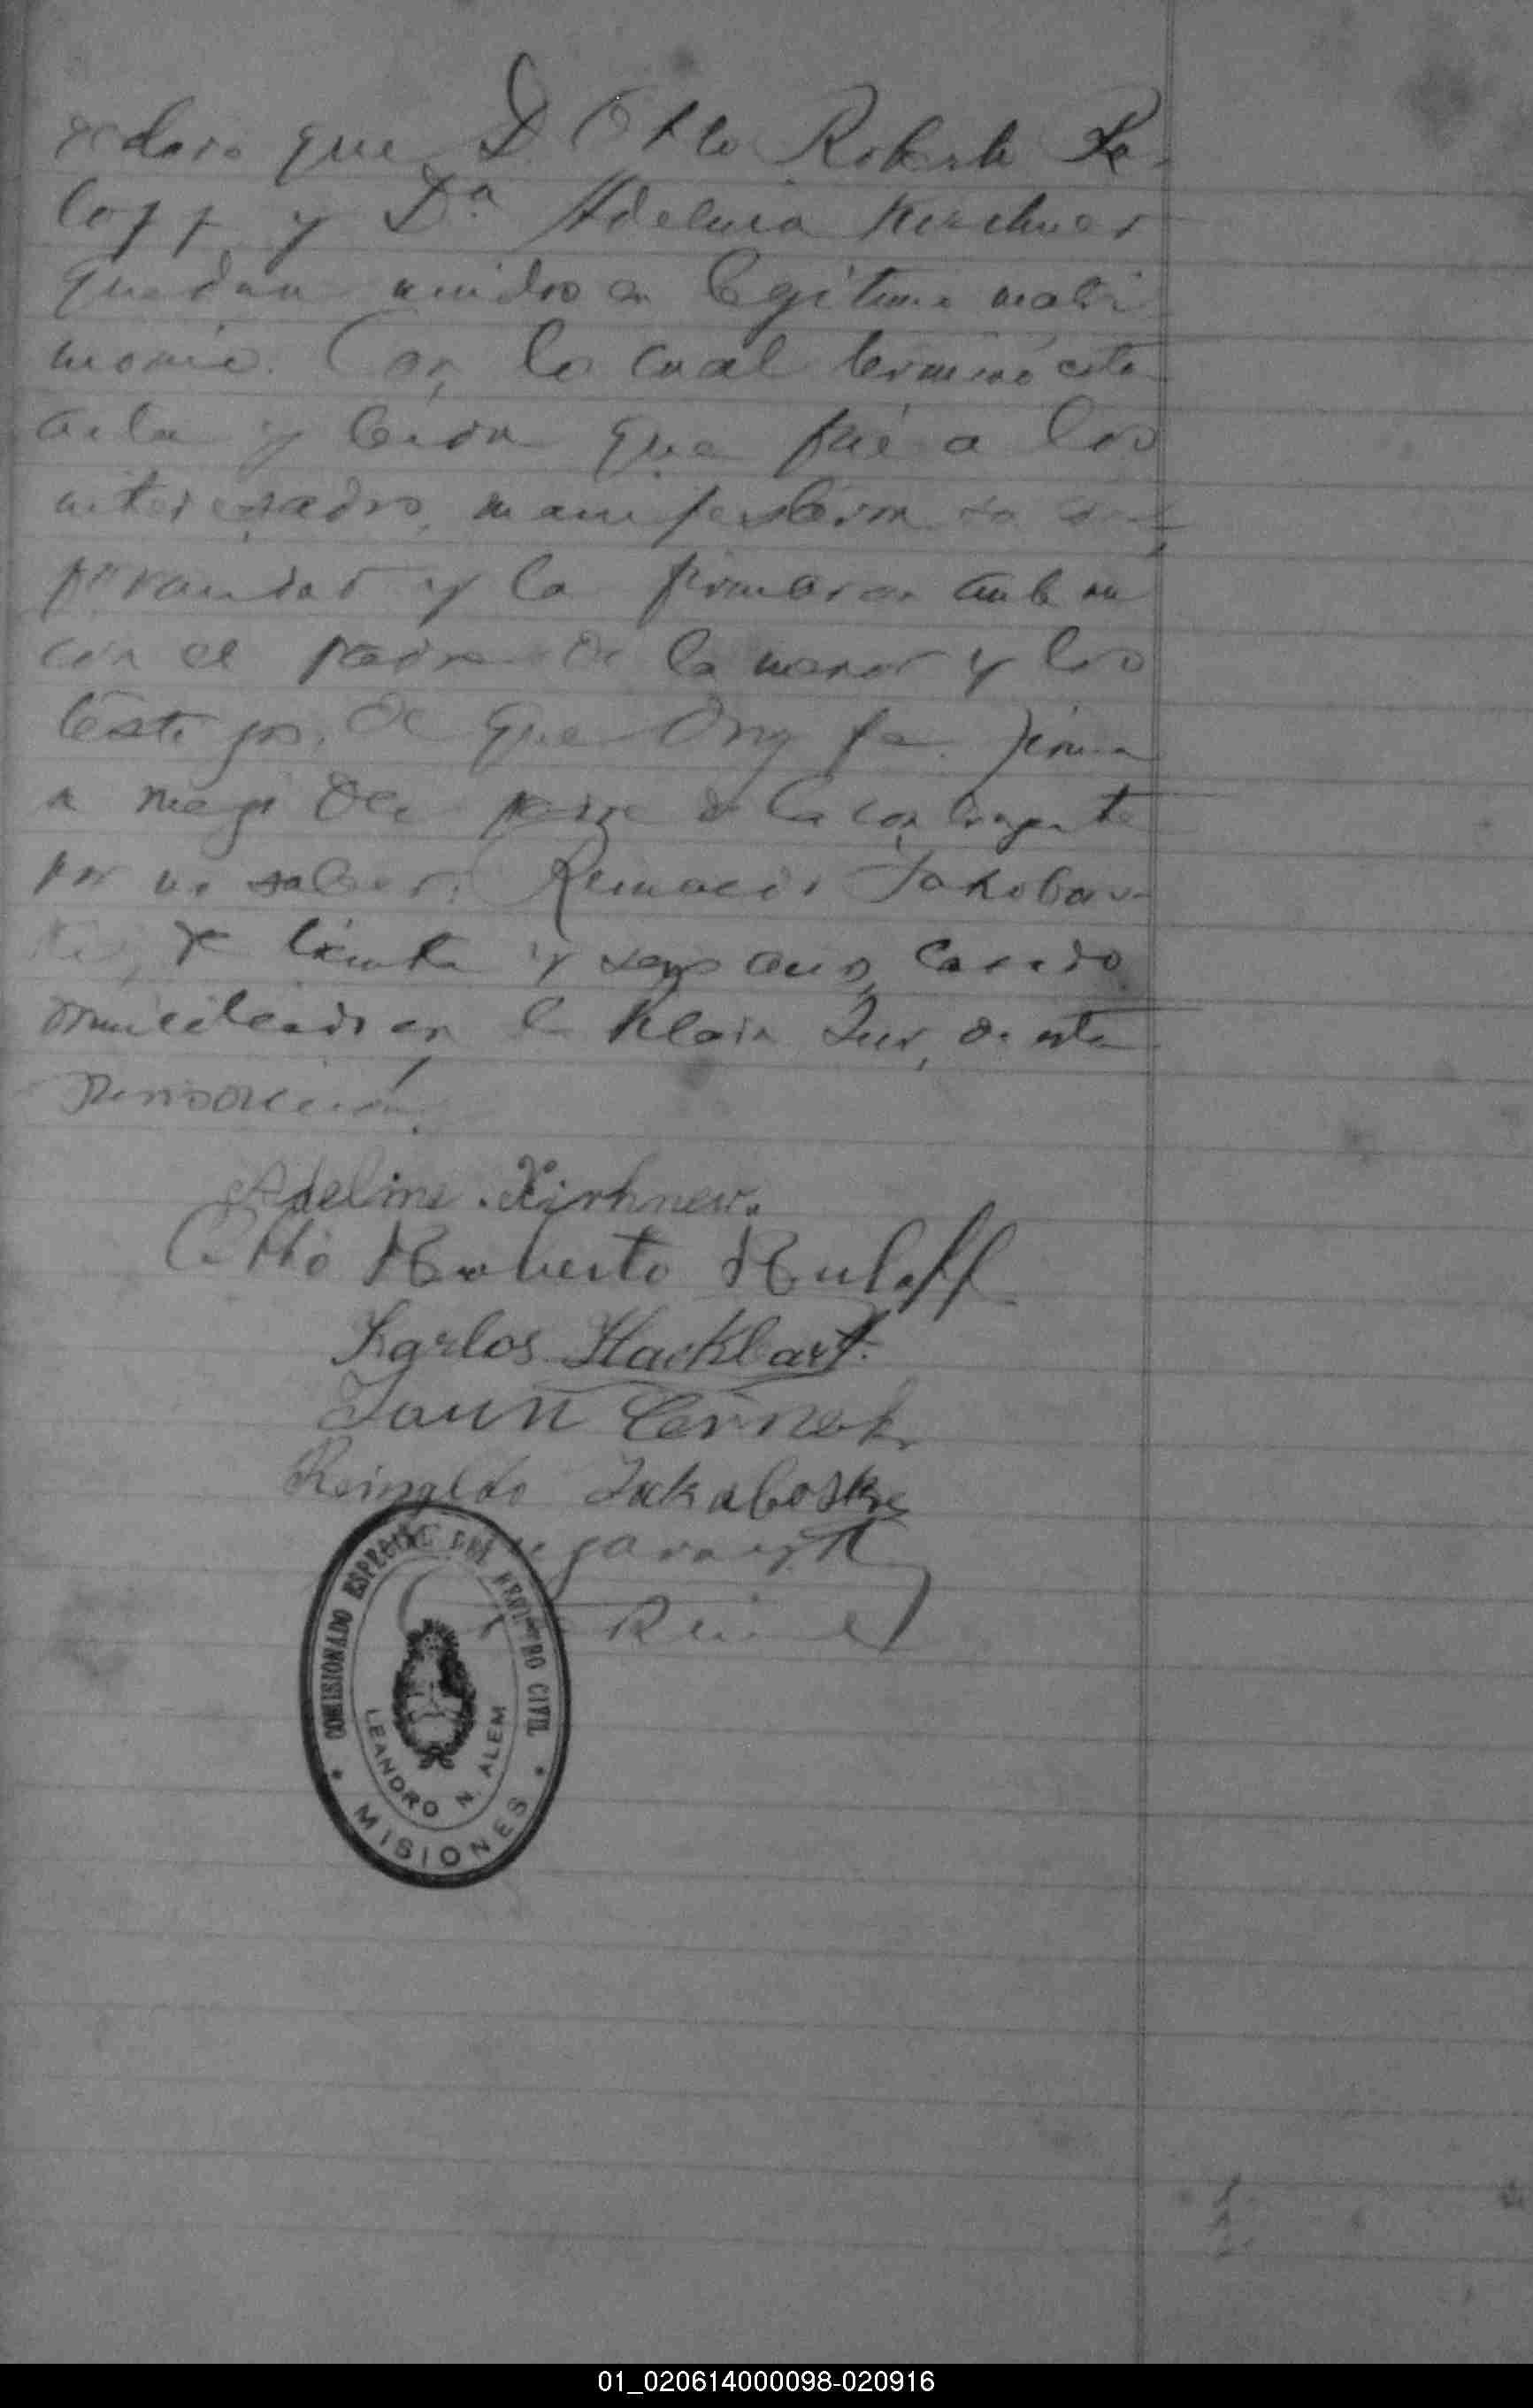 declaro que D Otto Roberto Ru
loff, y Dª Adelina Kirchner
quedan unidos en legítimo matri
monio. Con lo cual terminó esta
acta y leída que fué a los
interesados, manifestaron su con
formidad y la firmaron
con el padre de la menor y los
testigos, de que doy fe. firma
a ruego del padre de la contrayente
por no saber: Jakobow
de treinta y seis años, casado
domiciliado en Sur, de esta
jurisdicción.
Adeline Kirhner.
Otto Roberto Ruloff
Karlos Hackbart.
Cernek
Reinaldo Jakaboske
COMISIONADO ESPECIAL DEL REGISTRO CIVIL
LEANDRO N. ALEM
MISIONES
01_020614000098-020916